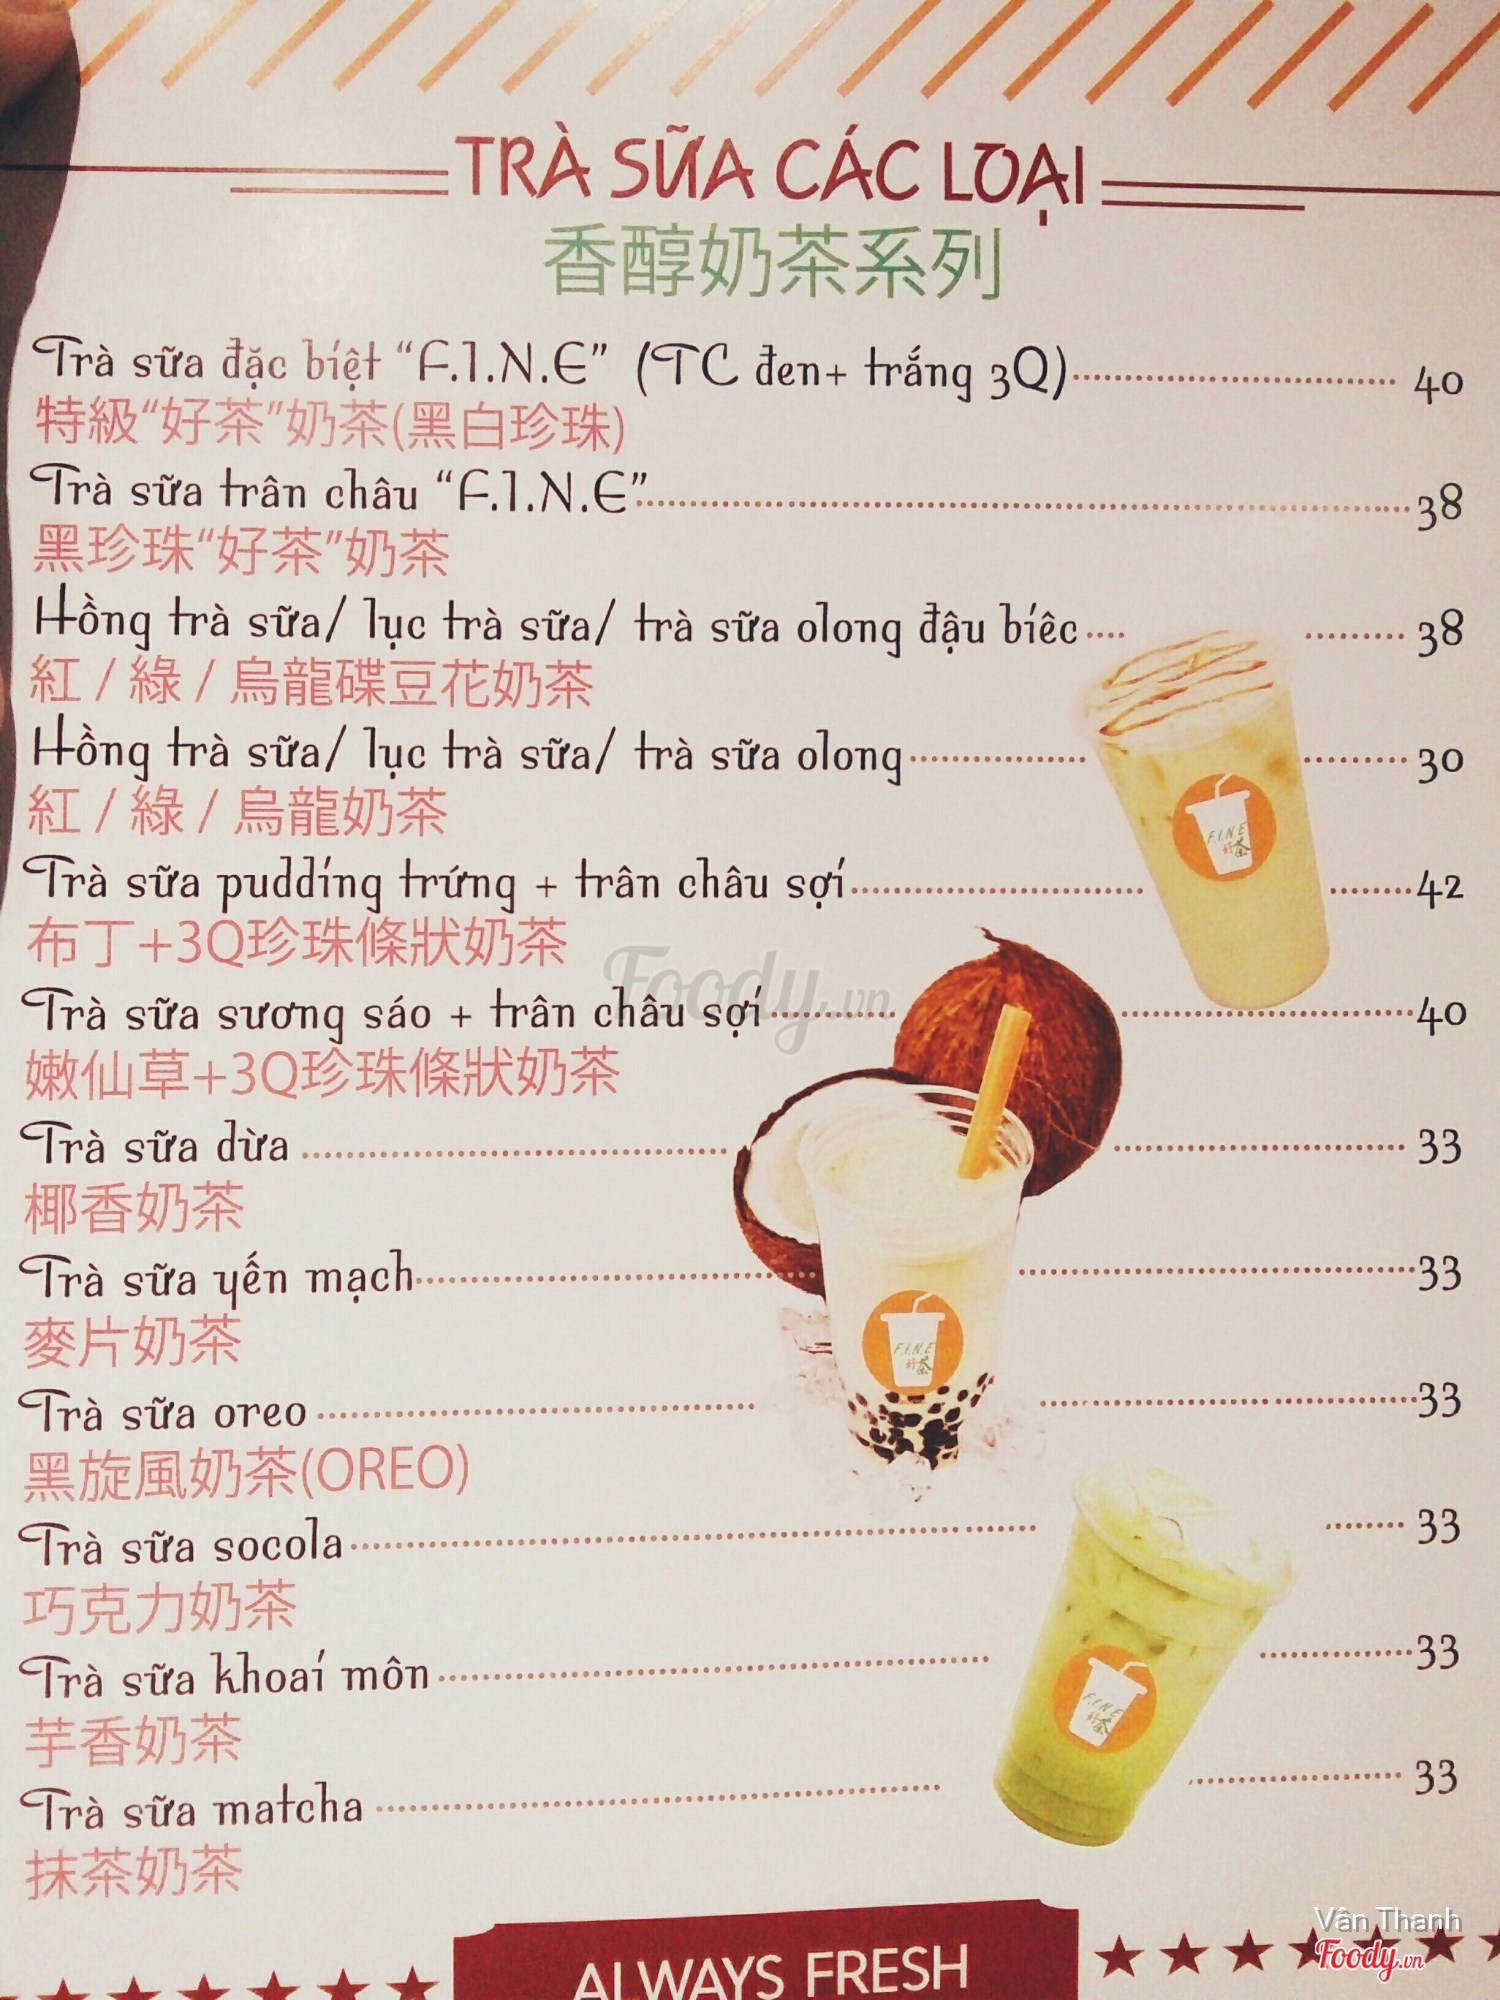 TRÀ SỮA CÁC LOẠI
香醇奶茶系列
Trà sữa đặc biệt “F.I.N.E” (TC đen+ trắng 3Q) 40
特級“好茶”奶茶(黑白珍珠)
Trà sữa trân châu “F.I.N.E” 38
黑珍珠“好茶”奶茶
Hồng trà sữa/ lục trà sữa/ trà sữa olong đậu biêc 38
紅 / 綠 / 烏龍碟豆花奶茶
Hồng trà sữa/ lục trà sữa/ trà sữa olong 30
紅 / 綠 / 烏龍奶茶
F.I.N.E
好茶
Trà sữa pudding trứng + trân châu sợi 42
布丁+3Q珍珠條狀奶茶
Foody.vn
Trà sữa sương sáo + trân châu sợi 40
嫩仙草+3Q珍珠條狀奶茶
Trà sữa dừa 33
椰香奶茶
Trà sữa yến mạch 33
麥片奶茶
F.I.N.E
好茶
Trà sữa oreo 33
黑旋風奶茶(OREO)
Trà sữa socola 33
巧克力奶茶
Trà sữa khoai môn 33
芋香奶茶
F.I.N.E
好茶
Trà sữa matcha 33
抹茶奶茶
ALWAYS FRESH
Vân Thanh
Foody.vn